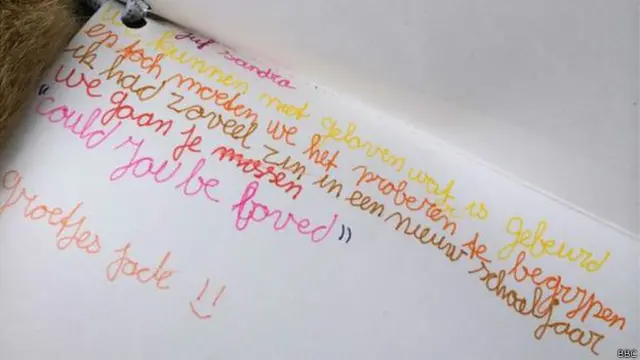 juf Sandra
we kunnen niet geloven wat is gebeurd
en toch moeten we het proberen te begrijpen
ik had zoveel zin in een nieuw schooljaar
we gaan je missen
"could you be loved"
groetjes jade !!
BBC